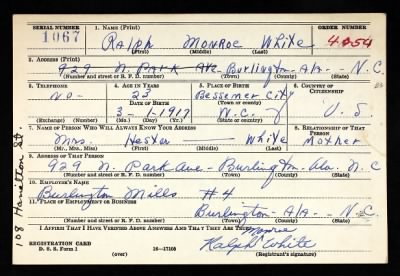 SERIAL NUMBER 1. NAME (Print) ORDER NUMBER
1067 RALPH MONROE White 4054
(First) (Middle) (Last)
2. ADDRESS (Print)
929 N. PARK AVE - Burlington - Ala - N.C.
(Number and street or R. F. D. number) (Town) (County) (State)
3. TELEPHONE 4. AGE IN YEARS 5. PLACE OF BIRTH 6. COUNTRY OF CITIZENSHIP
NO - 23 Bessemer City
DATE OF BIRTH (Town or county)
3- -1917 N.C. U.S.
(Mo.) (Day) (Yr.) (State or country)
7. NAME OF PERSON WHO WILL ALWAYS KNOW YOUR ADDRESS 8. RELATIONSHIP OF THAT PERSON
Mrs. Hester White Mother
(Mr., Mrs., Miss) (First) (Middle) (Last)
9. ADDRESS OF THAT PERSON
929 N. Park Ave - Burlington - Ala. N.C
(Number and street or R. F. D. number) (Town) (County) (State)
10. EMPLOYER'S NAME
Burlington Mills #4
11. PLACE OF EMPLOYMENT OR BUSINESS
Burlington - Ala - N.C.
(Number and street or R. F. D. number) (Town) (County) (State)
I AFFIRM THAT I HAVE VERIFIED ABOVE ANSWERS AND THAT THEY ARE TRUE.
REGISTRATION CARD
D. S. S. Form 1 16-17105 Ralph Monroe White
(over) (Registrant's signature)
108 St.